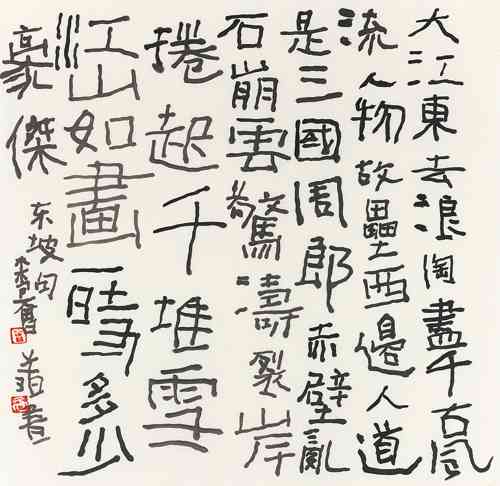 大江東去浪淘盡千古風
流人物故壘西邊人道
是三國周郎赤壁亂
石崩雲驚濤裂岸
捲起千堆雪
江山如畫一時多少
豪傑
东坡句